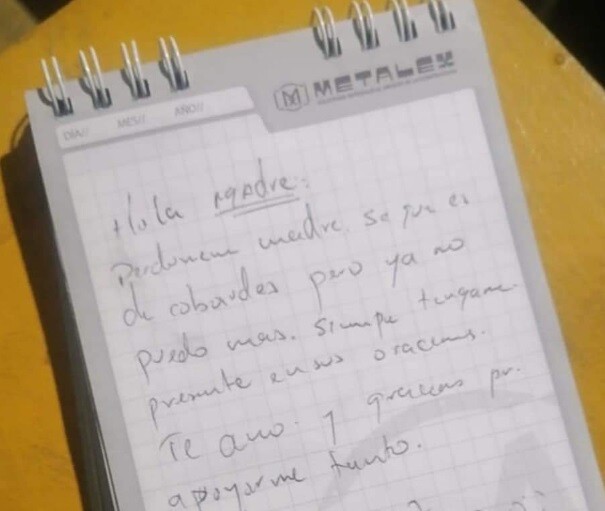 METALEX
DIA// MES// AÑO//
Hola Madre:
Perdoneme madre se que es
de cobardes pero ya no
puedo mas. Siempre tengame
presente en sus oraciones.
Te amo. y gracias por
apoyarme tanto.